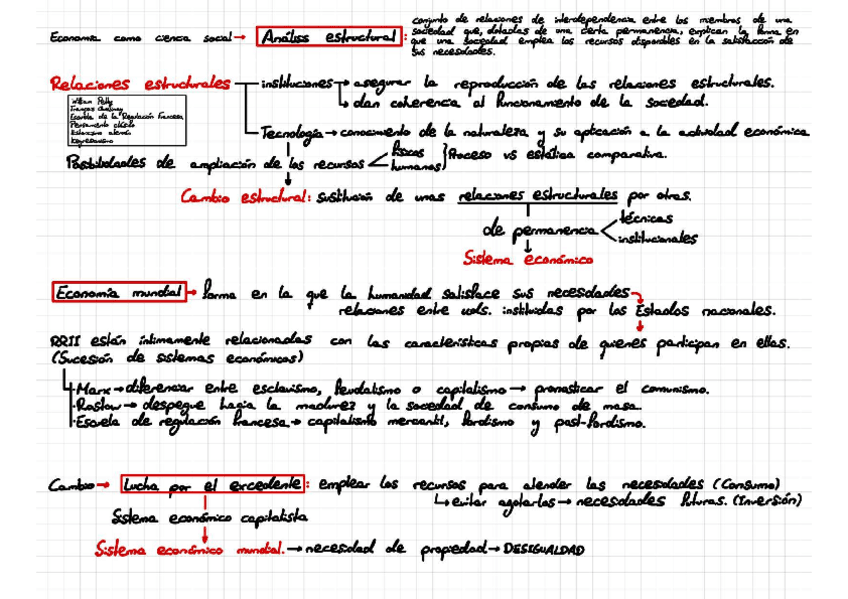 Economía como ciencia social → Análisis estructural: conjunto de relaciones de interdependencia entre los miembros de una
sociedad que, dotadas de una cierta permanencia, explican la forma en
que una sociedad emplea los recursos disponibles en la satisfacción de
sus necesidades.
Relaciones estructurales — instituciones → asegurar la reproducción de las relaciones estructurales.
↳ dan coherencia al funcionamiento de la sociedad.
William Petty
François Quesnay
Escuela de la Regulación Francesa
Pensamiento clásico
Historicismo alemán
Keynesianismo
Tecnología → conocimiento de la naturaleza y su aplicación a la actividad económica
Posibilidades de ampliación de los recursos < físicos
humanos } Proceso vs estática comparativa.
Cambio estructural: sustitución de unas relaciones estructurales por otras.
de permanencia < técnicas
institucionales
Sistema económico
Economía mundial → forma en la que la humanidad satisface sus necesidades
relaciones entre uds. instituidas por los Estados nacionales.
RRII están íntimamente relacionadas con las características propias de quienes participan en ellas.
(Sucesión de sistemas económicos)
Marx → diferenciar entre esclavismo, feudalismo o capitalismo → pronosticar el comunismo.
Rostow → despegue hacia la madurez y la sociedad de consumo de masa.
Escuela de regulación francesa → capitalismo mercantil, fordismo y post-fordismo.
Cambio → Lucha por el excedente: emplear los recursos para atender las necesidades (Consumo)
↳ evitar agotarlos → necesidades futuras. (Inversión)
Sistema económico capitalista
Sistema económico mundial. → necesidad de propiedad → DESIGUALDAD